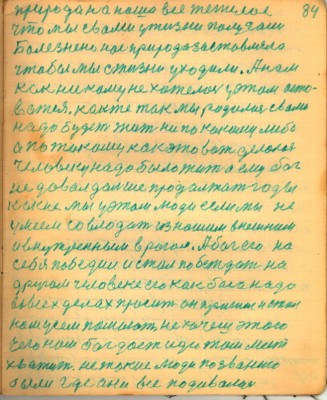 84
природа на наша все тяжелое
что мы с вами у жизни получали
Болезнено нас природа заставляла
чтобы мы с жизни уходили. А нам
как никому не хотелось у этом
как же так мы родилися с вами
надо будет жить ни по какому либо
а по такому как этовот делося
человеку надо было жить а ему бог
не довал дальше продалжать годы
какие мы у этом люди если мы не
умеем совлодать из нашим внешним
и внутренным врагом. А бог его на
себя победил и стал побеждать на
другом человеке его как бога надо
во всех делах просить он и стал
нам усем помогать, не хочем этого
чего нам бог дает иди там место
хватит, не такие люди по званию
были где они все подивались